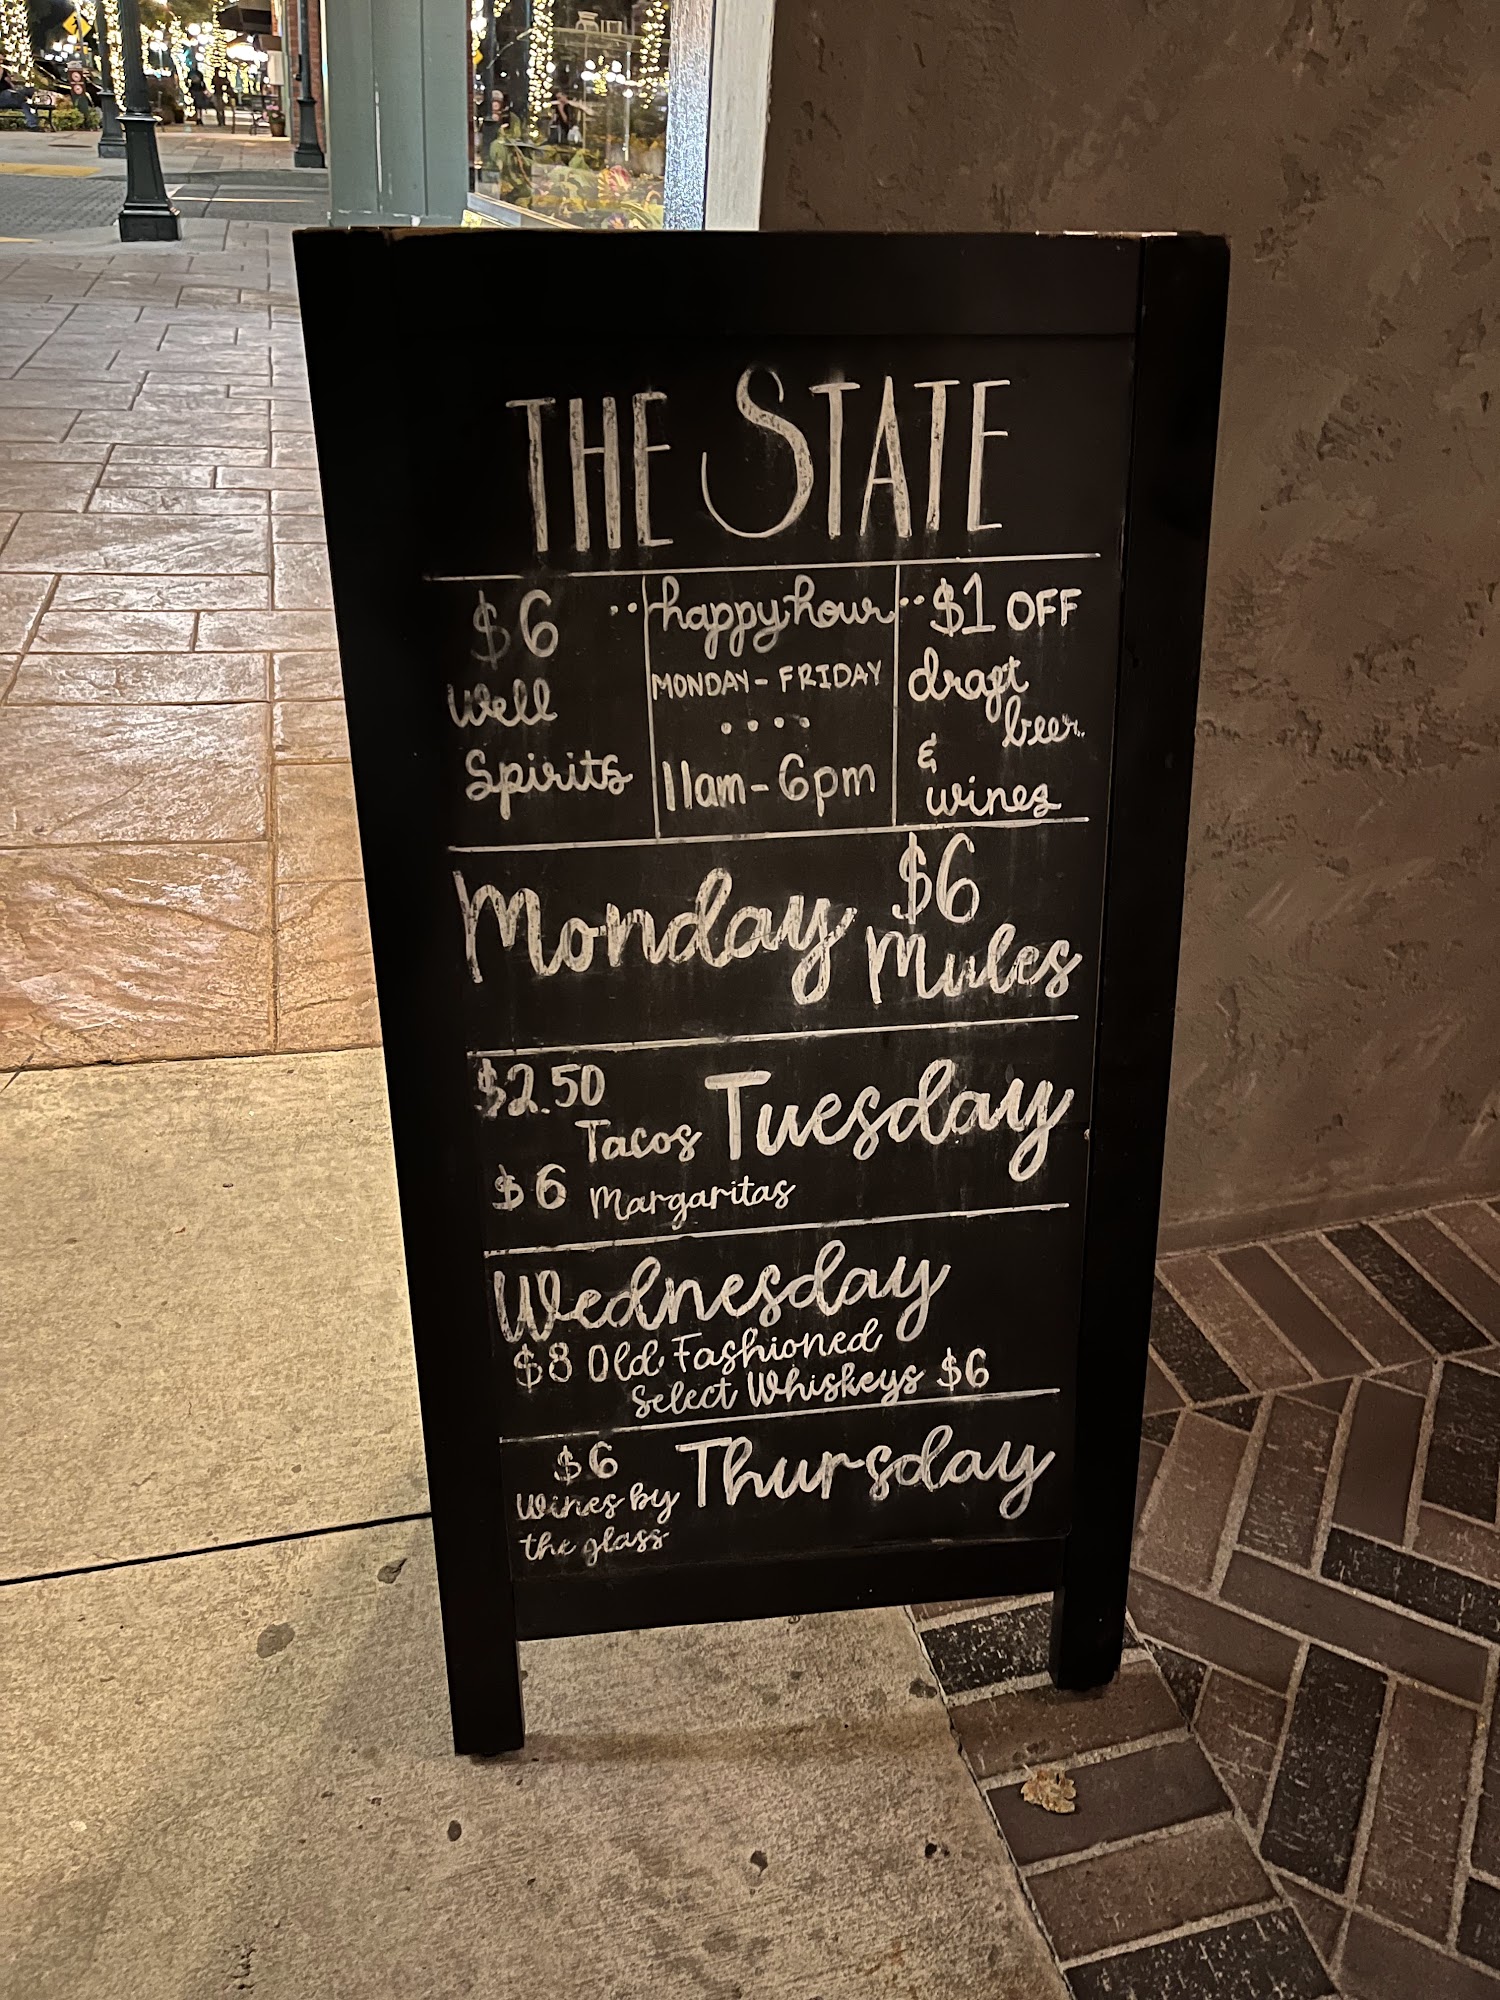 THE STATE
$6
Well
Spirits
happy hour
MONDAY - FRIDAY
11am - 6pm
$1 OFF
draft
beer
&
wines
Monday
$6
Mules
$2.50
Tacos
$6 Margaritas
Tuesday
Wednesday
$8 Old Fashioned
Select Whiskeys $6
$6
Wines by
the glass
Thursday